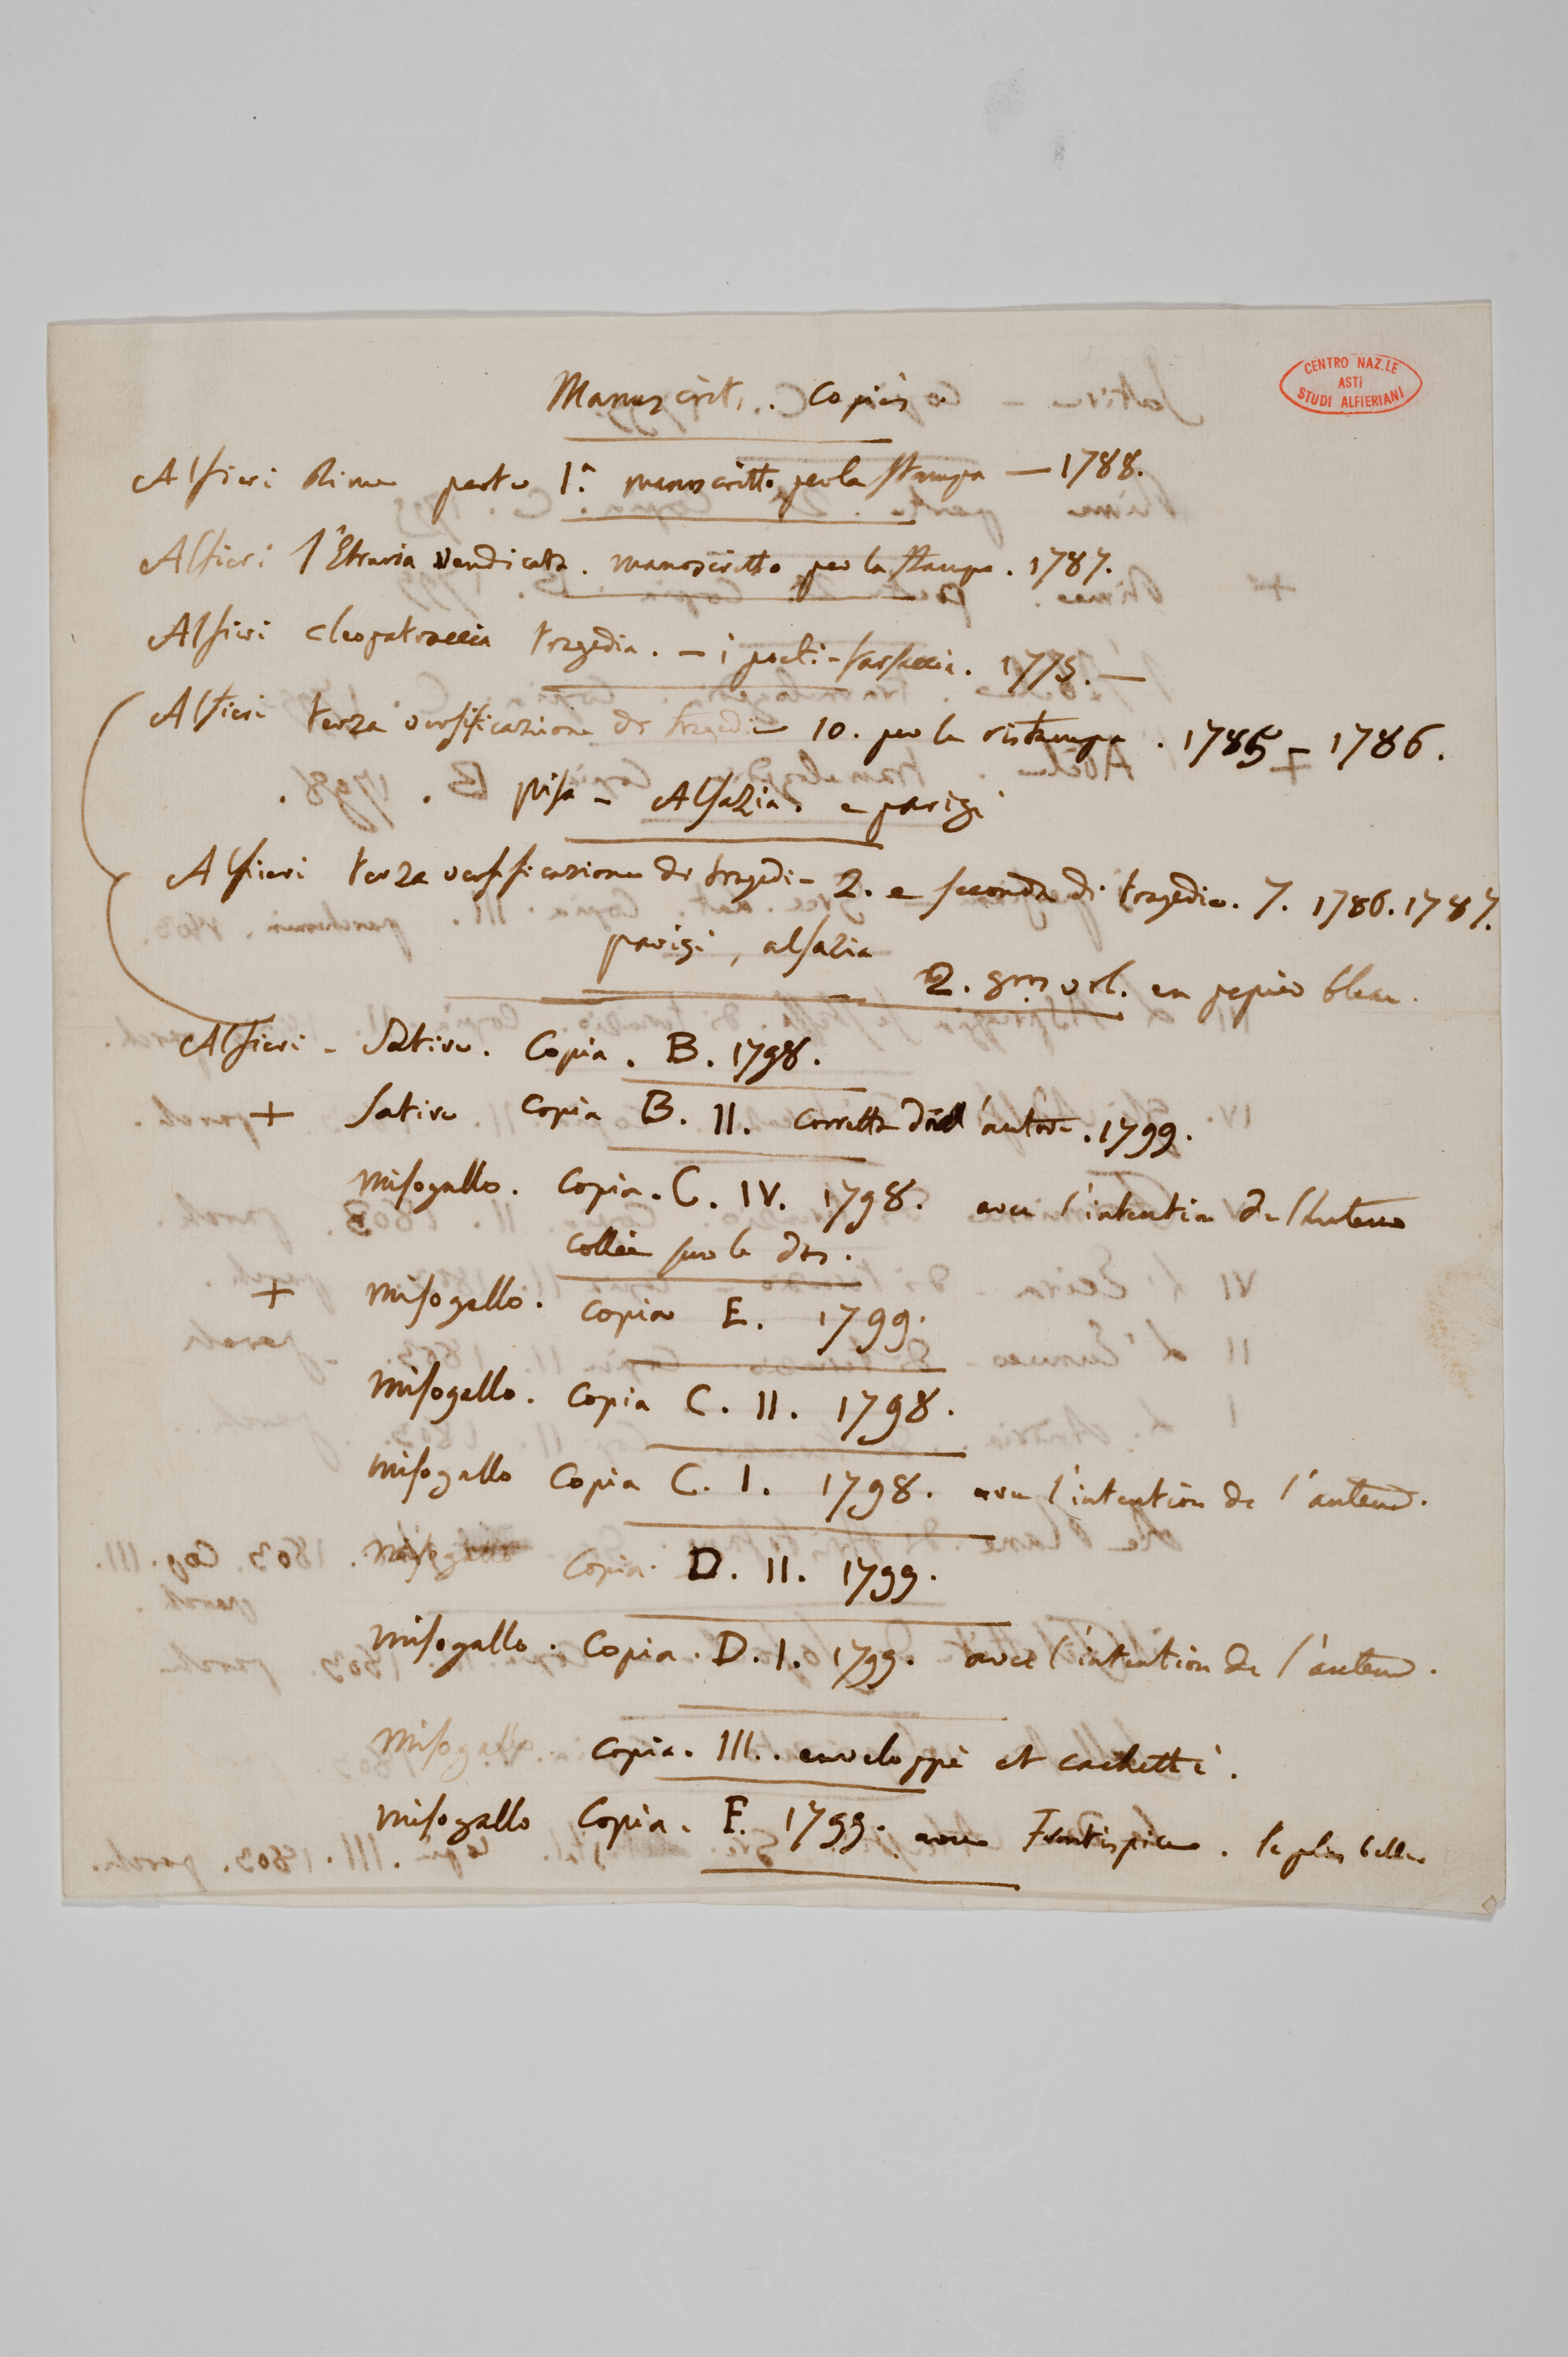 Manuscrit. Copiés
CENTRO NAZ.LE
ASTI
STUDI ALFIERIANI
Alfieri Rime parte 1.ª manoscritto per la stampa — 1788.
Alfieri l'Etruria Vendicata. manoscritto per la stampa. 1787.
Alfieri cleopatraccia tragedia. — i poeti - farsaccia. 1775. —
Alfieri terza versificazione di tragedie 10. per la ristampa. 1785 - 1786.
pisa - Alsazia. e parigi
Alfieri terza versificazione di tragedie 2. e seconda di tragedie. 7. 1786. 1787.
parigi, alsazia
2. gros vol. en papier bleu.
Alfieri - Satire. Copia. B. 1798.
+ Satire Copia B. II. corretta dall'autore. 1799.
Misogallo. Copia. C. IV. 1798. avec l'intention de l'Auteur
collée sur le dos.
+ Misogallo. Copia E. 1799.
Misogallo. Copia C. II. 1798.
Misogallo Copia C. I. 1798. avec l'intention de l'auteur.
Misogallo Copia D. II. 1799.
Misogallo. Copia. D. I. 1799. avec l'intention de l'auteur.
Misogallo. Copia. III.. enveloppé et cachetté.
Misogallo Copia. F. 1799. avec Frontispice. le plus belle